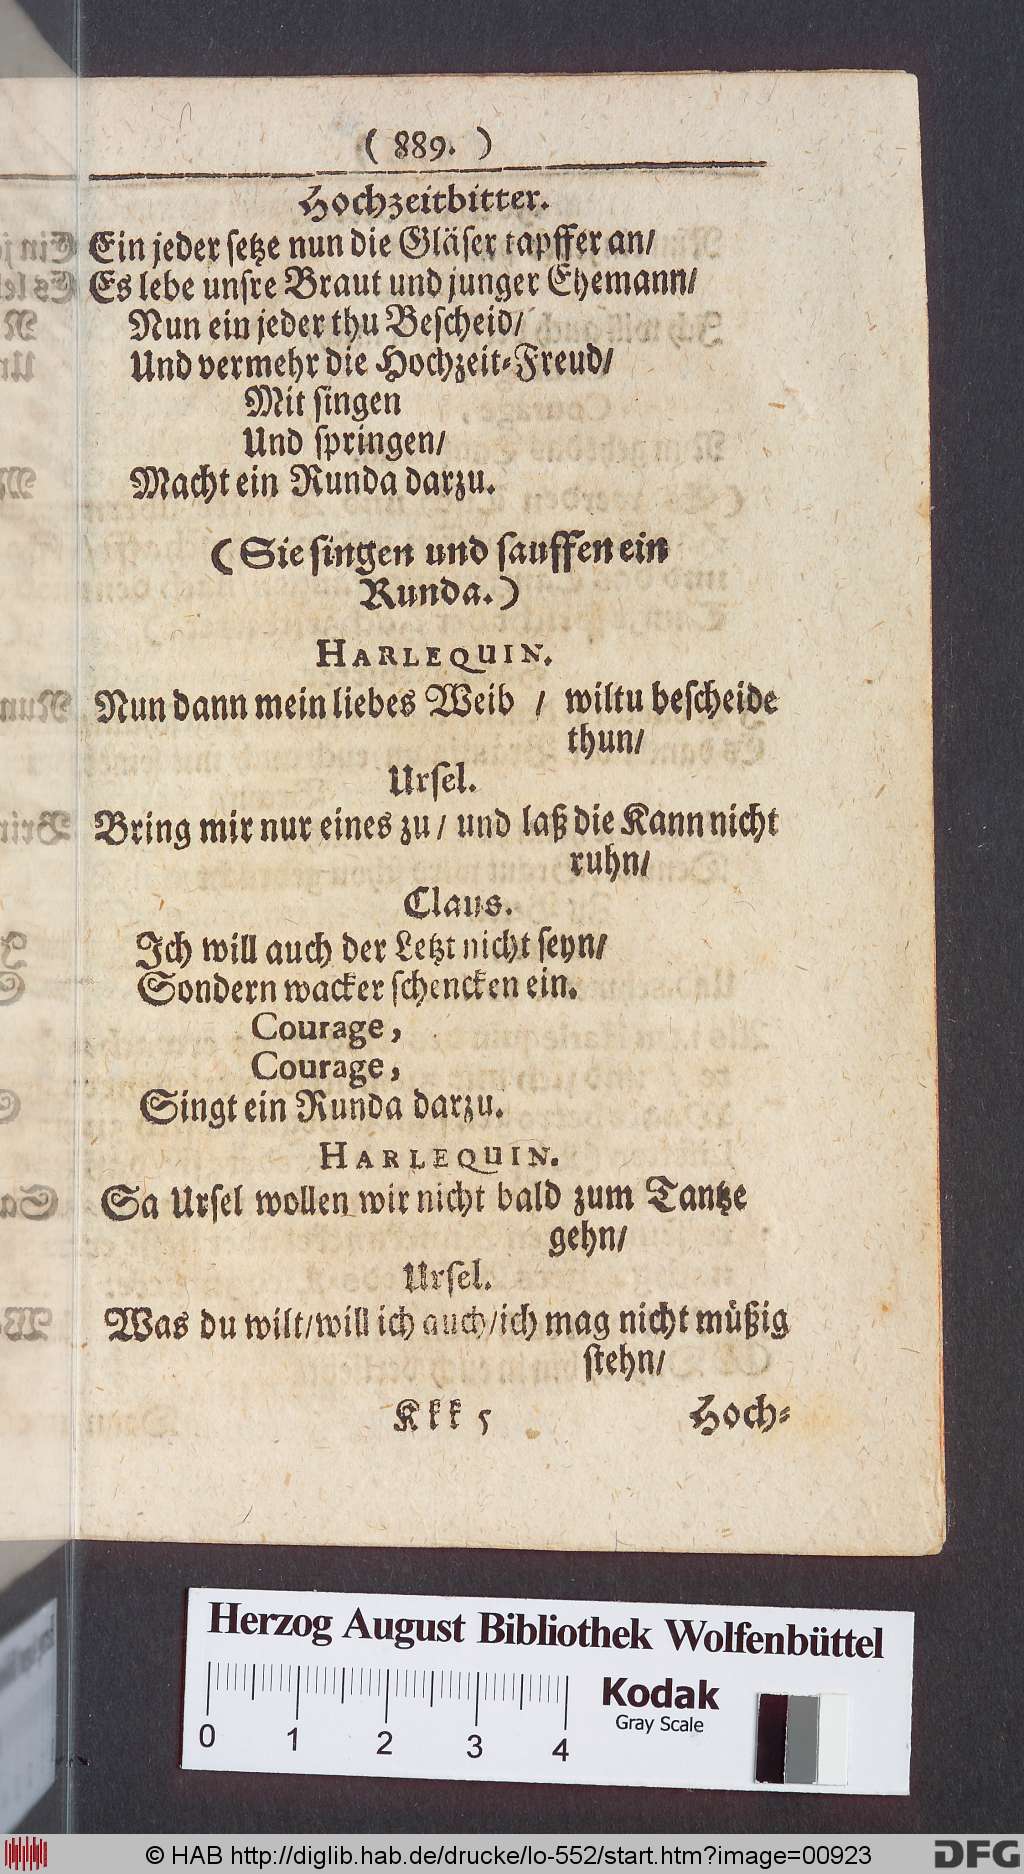 ( 889. )
Hochzeitbitter.
Ein jeder setze nun die Gläser tapffer an/
Es lebe unsre Braut und junger Ehemann/
Nun ein jeder thu Bescheid/
Und vermehr die Hochzeit-Freud/
Mit singen
Und springen/
Macht ein Runda darzu.
(Sie singen und sauffen ein
Runda.)
HARLEQUIN.
Nun dann mein liebes Weib / wiltu bescheide
thun/
Ursel.
Bring mir nur eines zu/ und laß die Kann nicht
ruhn/
Claus.
Ich will auch der Letzt nicht seyn/
Sondern wacker schencken ein.
Courage,
Courage,
Singt ein Runda darzu.
HARLEQUIN.
Sa Ursel wollen wir nicht bald zum Tantze
gehn/
Ursel.
Was du wilt/will ich auch/ich mag nicht müßig
stehn/
Kkk 5 Hoch-
Herzog August Bibliothek Wolfenbüttel
Kodak
Gray Scale
0 1 2 3 4
© HAB http://diglib.hab.de/drucke/lo-552/start.htm?image=00923
DFG